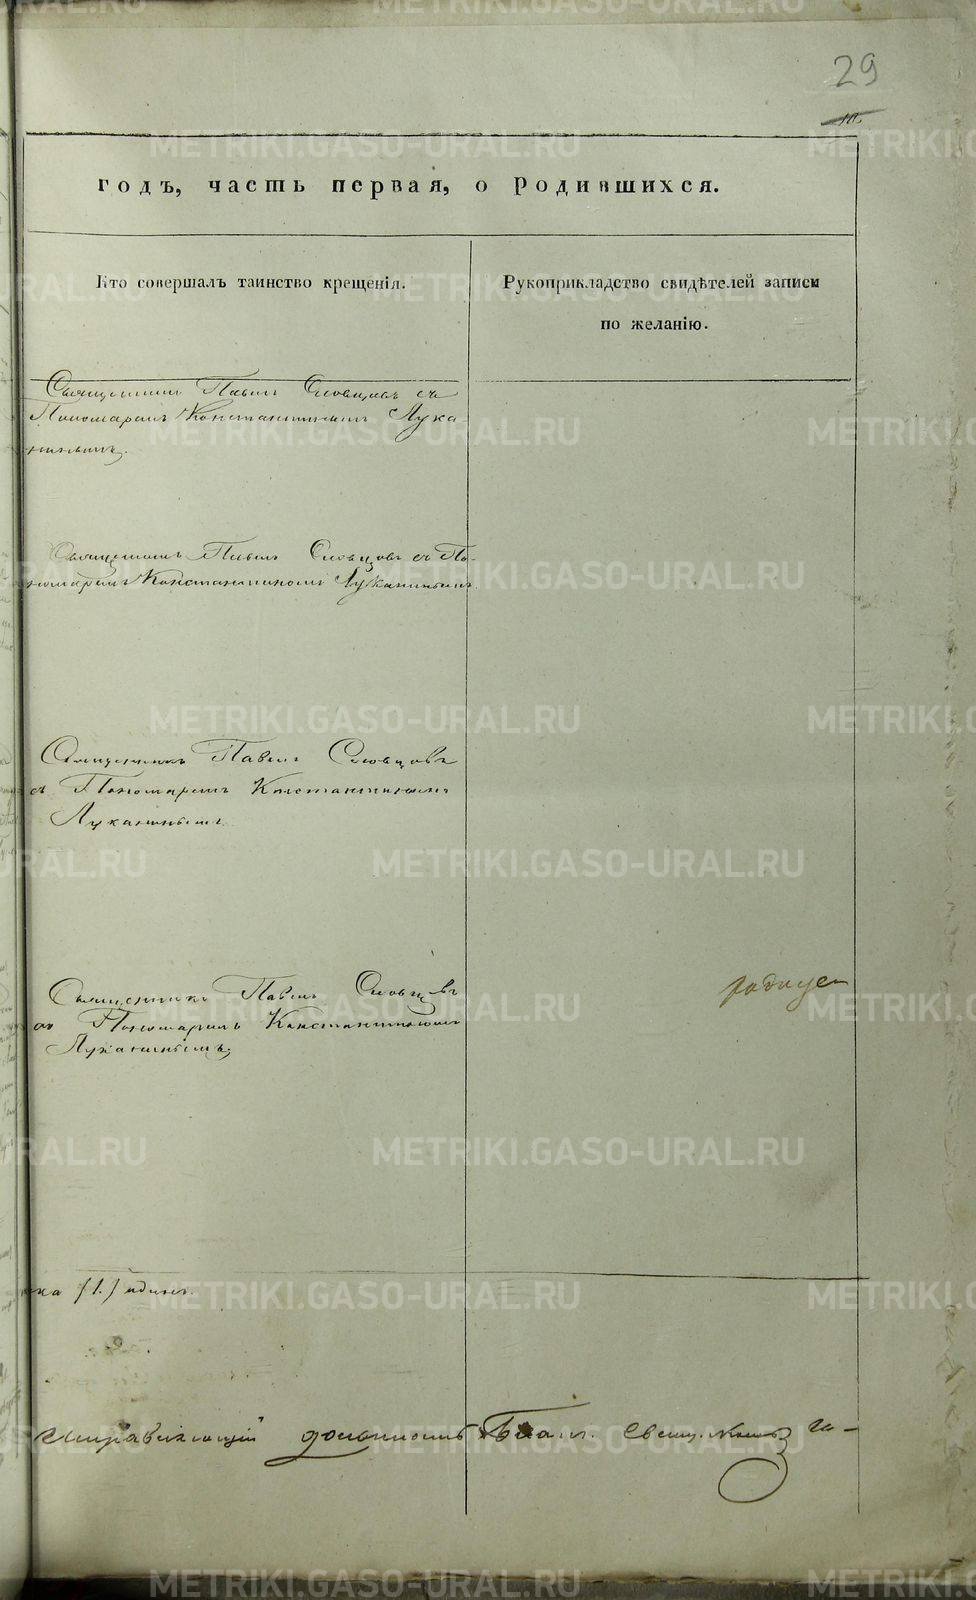 29
годъ, часть первая, о родившихся.
Кто совершалъ таинство крещенія.
Рукоприкладство свидѣтелей записи
по желанію.
Священникъ Павелъ Словцовъ съ
Пономаремъ Константиномъ Лука-
нинымъ.
Священникъ Павелъ Словцовъ съ По-
номаремъ Константиномъ Луканинымъ.
Священникъ Павелъ Словцовъ
съ Пономаремъ Константиномъ
Луканинымъ
Священникъ Павелъ Словцовъ
съ Пономаремъ Константиномъ
Луканинымъ.
(1.) одинъ.
должность
METRIKI.GASO-URAL.RU